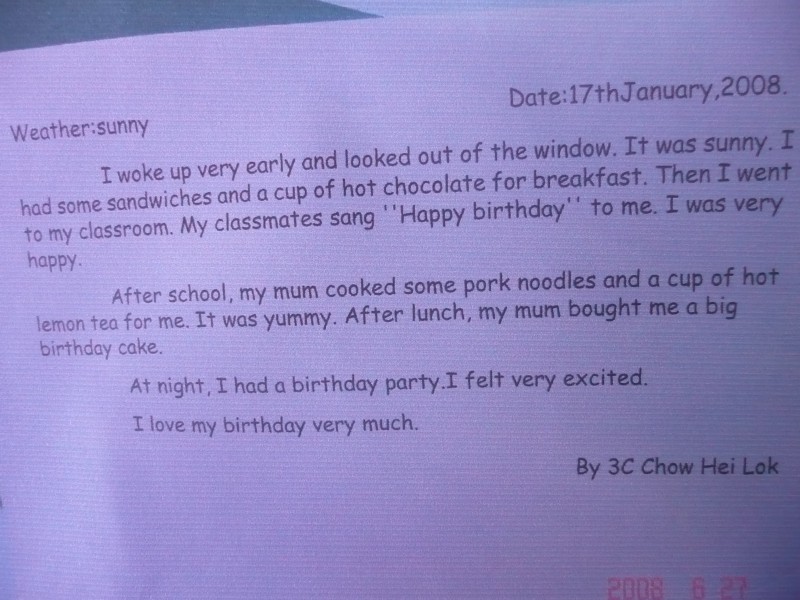 Date:17thJanuary,2008.
Weather:sunny
I woke up very early and looked out of the window. It was sunny. I
had some sandwiches and a cup of hot chocolate for breakfast. Then I went
to my classroom. My classmates sang ''Happy birthday'' to me. I was very
happy.
After school, my mum cooked some pork noodles and a cup of hot
lemon tea for me. It was yummy. After lunch, my mum bought me a big
birthday cake.
At night, I had a birthday party.I felt very excited.
I love my birthday very much.
By 3C Chow Hei Lok
2008 6 27